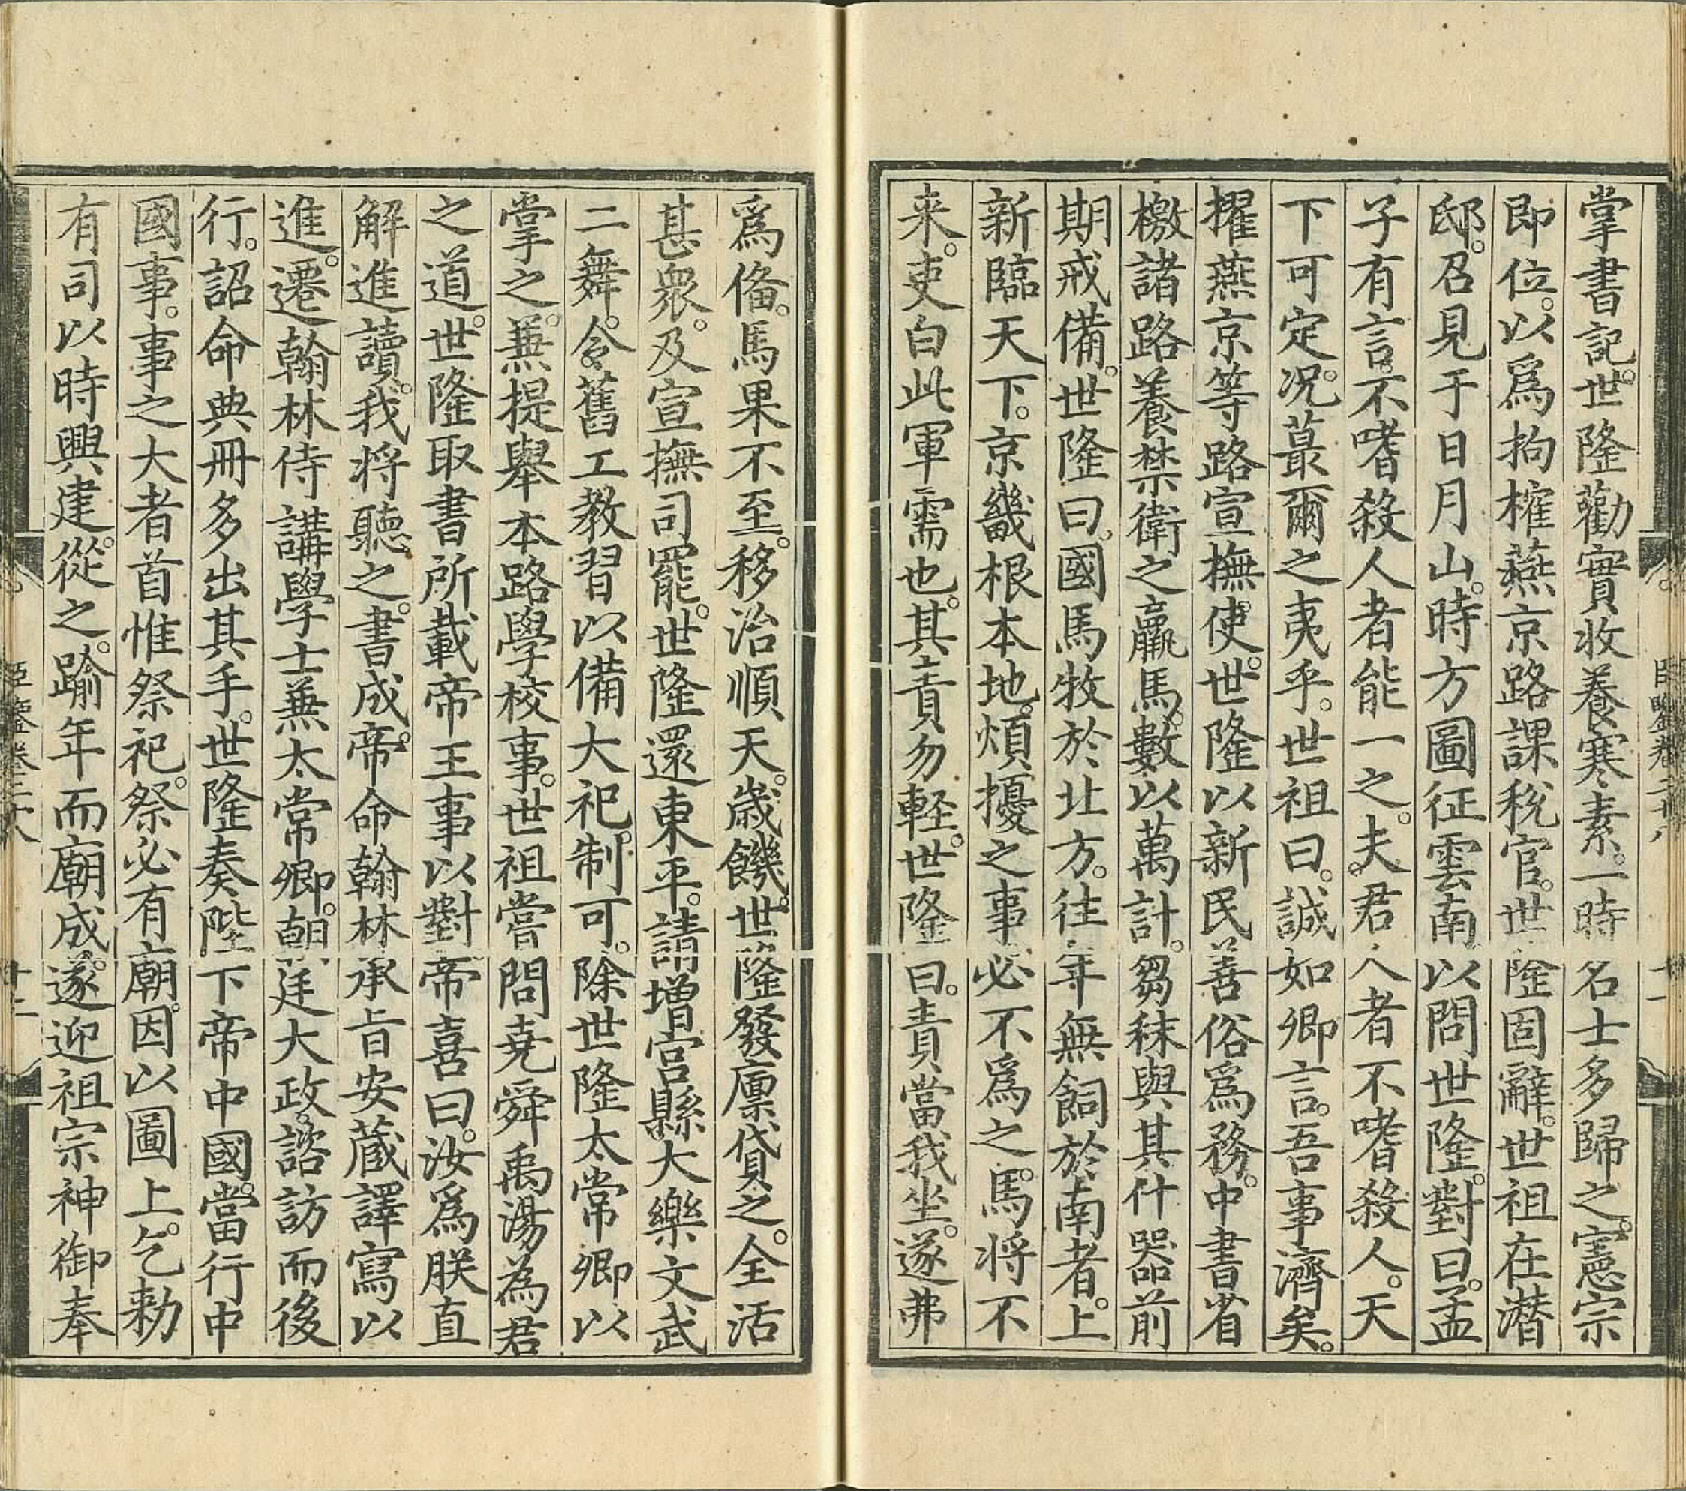 掌書記。世隆勸實收養寒素。一時名士多歸之。憲宗
即位。以爲拘榷燕京路課稅官。世隆固辭。世祖在潛
邸。召見于日月山。時方圖征雲南以問世隆。對曰。孟
子有言。不嗜殺人者能一之。夫君人者不嗜殺人。天
下可定。況蕞爾之夷乎。世祖曰。誠如卿言。吾事濟矣。
擢燕京等路宣撫使。世隆以新民善俗爲務。中書省
檄諸路養禁衛之羸馬。數以萬計。芻秣與其什器前
期戒備。世隆曰。國馬牧於北方。往年無飼於南者。上
新臨天下。京畿根本地。煩擾之事必不爲之。馬將不
来。吏白此軍需也。其責勿軽。世隆曰。責當我坐。遂弗
爲俻。馬果不至。移治順天。歲饑。世隆發廩貸之。全活
甚衆。及宣撫司罷。世隆還東平。請增宮縣大樂文武
二舞。令舊工教習以備大祀。制可。除世隆太常卿以
掌之。兼提舉本路學校事。世祖嘗問堯舜禹湯為君
之道。世隆取書所載帝王事以對帝喜曰。汝爲朕直
解進讀。我將聽之。書成。帝命翰林承旨安蔵譯寫以
進。遷翰林侍講學士兼太常卿。朝廷大政。諮訪而後
行。詔命典冊多出其手。世隆奏陛下帝中國。當行中
國事。事之大者首惟祭祀。祭必有廟。因以圖上。乞勑
有司以時興建。從之。踰年而廟成。遂迎祖宗神御奉